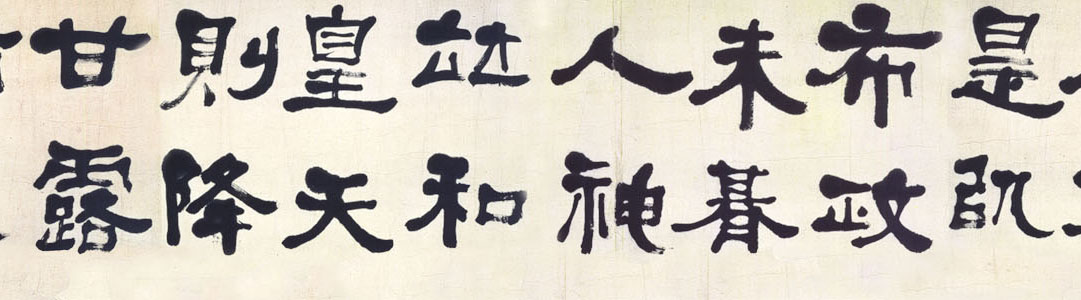 是以
布政
未朞
人神
竝和
皇天
則降
甘露